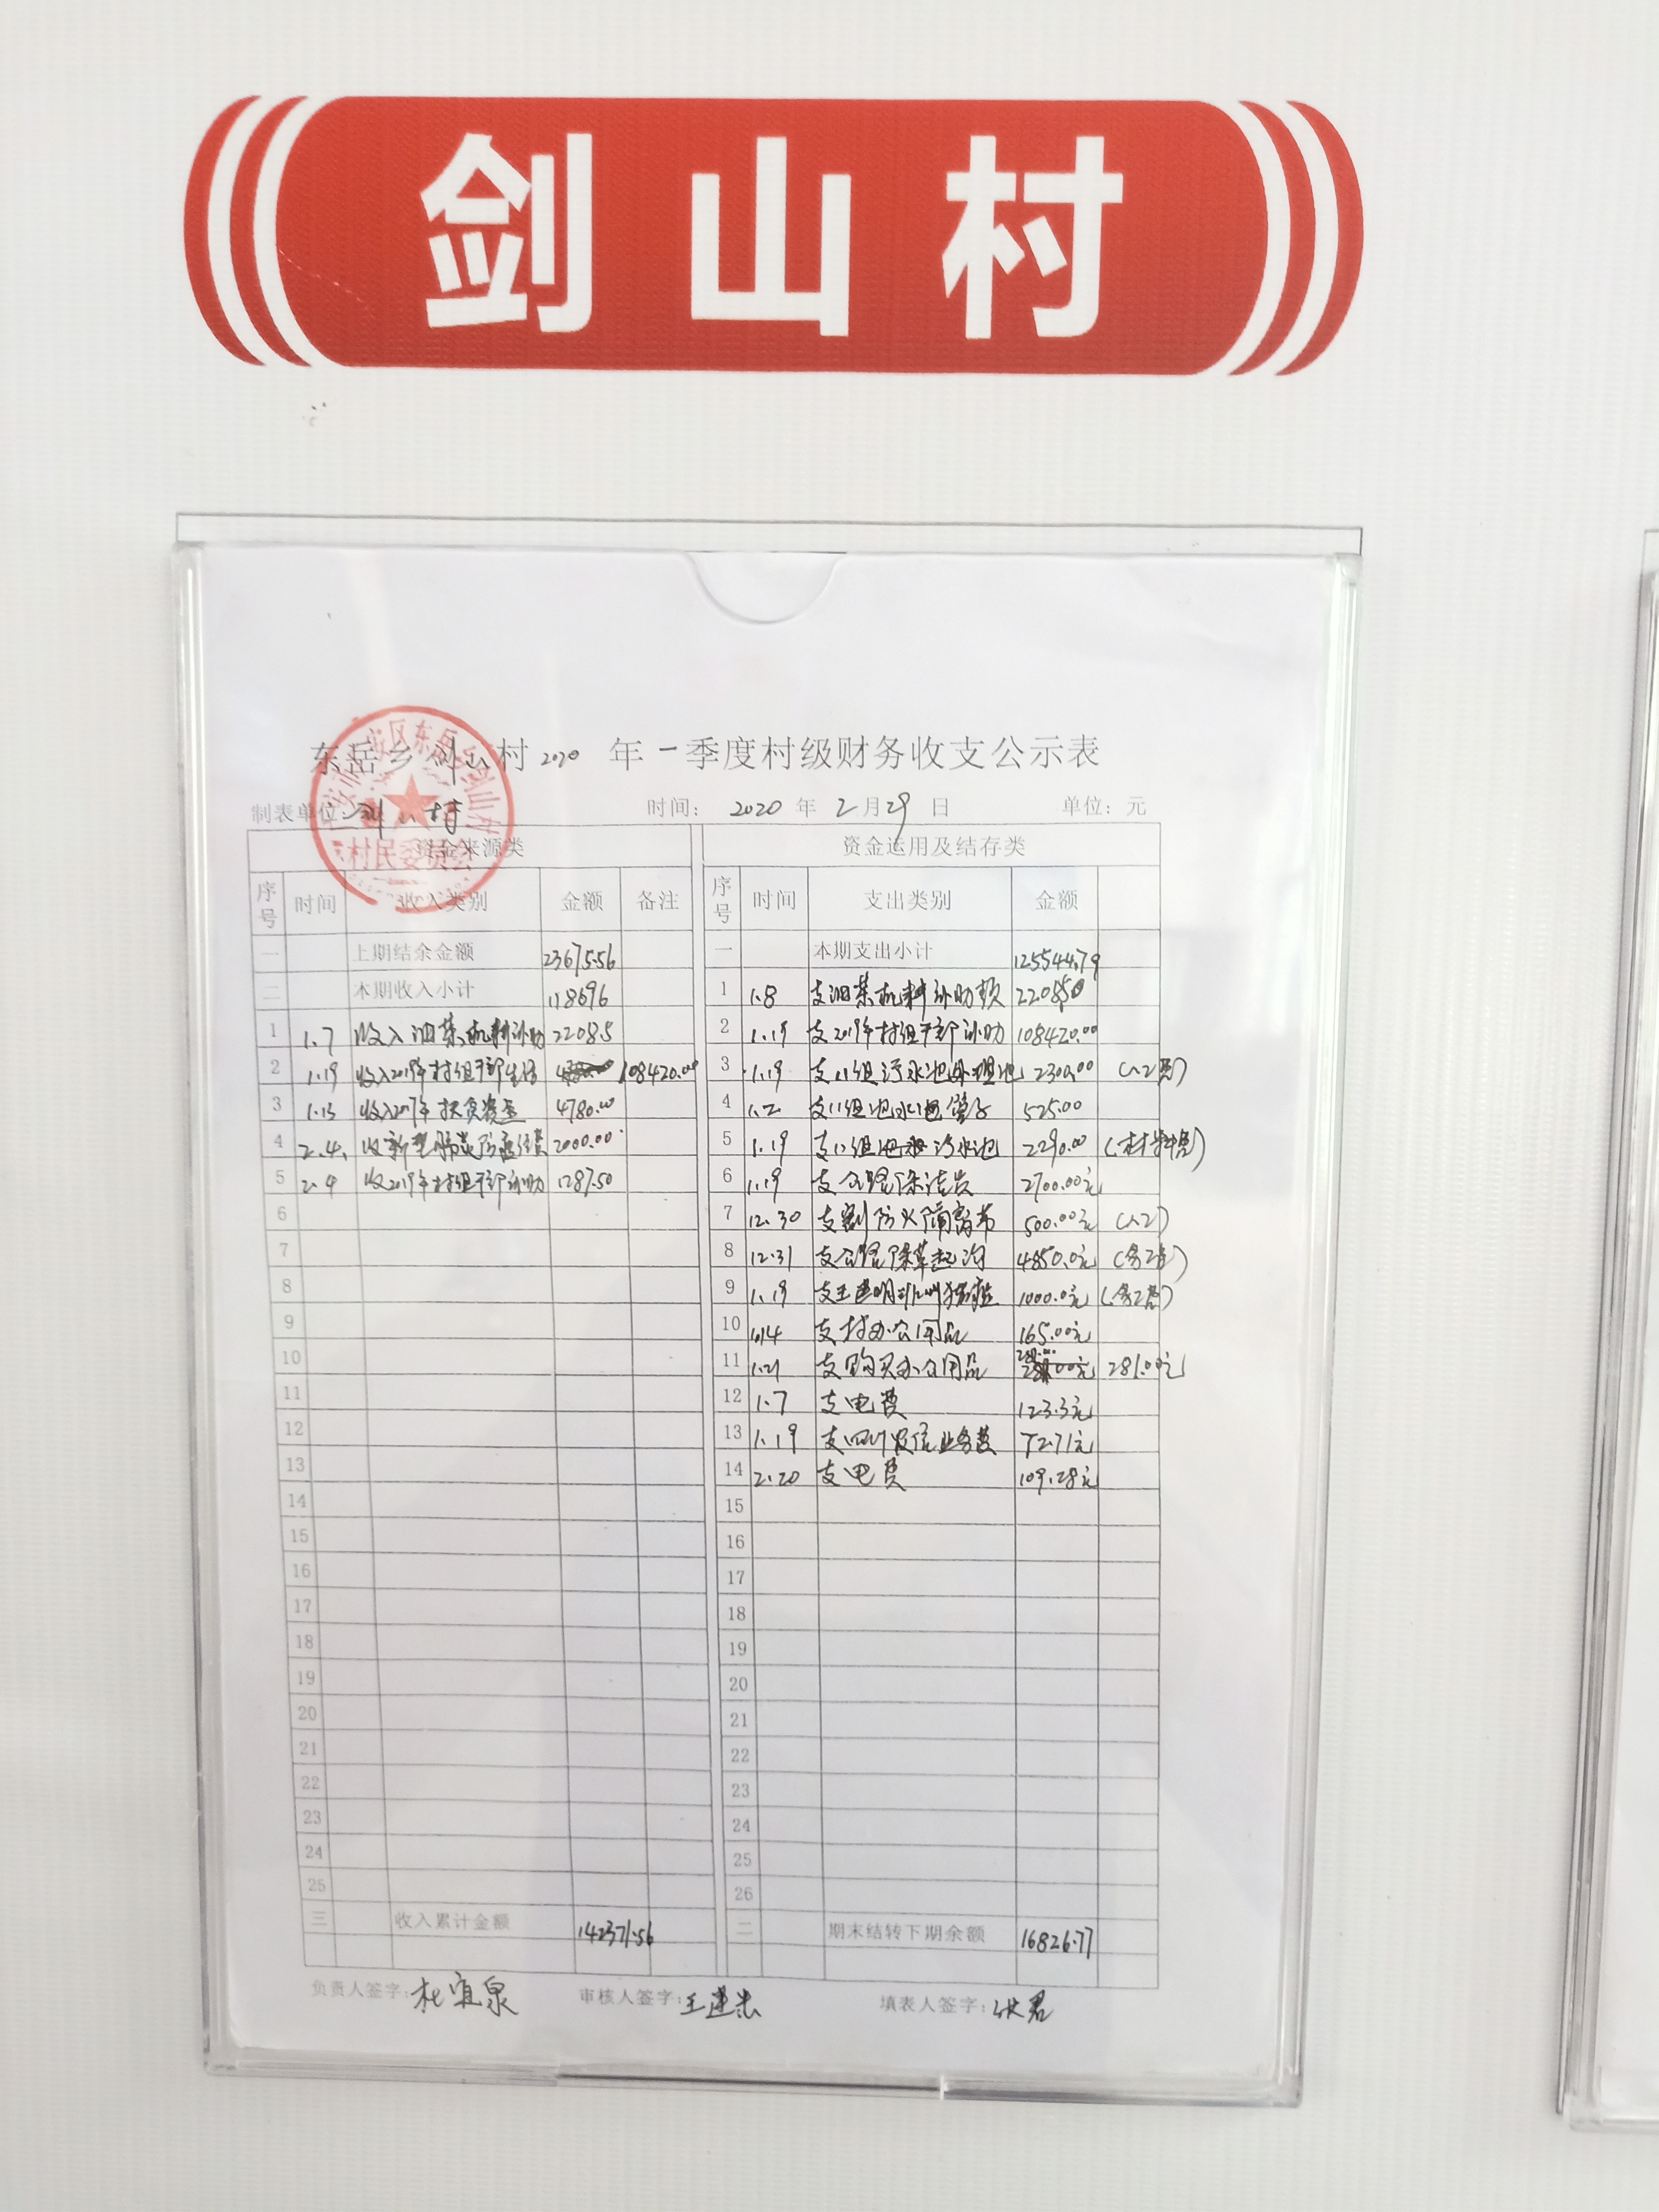 剑山村
东岳乡剑山村2020年一季度村级财务收支公示表
制表单位:剑山村 时间: 2020年2月29日 单位: 元
资金来源类 资金运用及结存类
序号 时间 收入类别 金额 备注 序号 时间 支出类别 金额
一 上期结余金额 23675.56 一 本期支出小计 125544.79
二 本期收入小计 118696 1 1.8 支油菜机耕补助款 22085
1 1.7 收入油菜机耕补助 2208.5 2 1.19 支2019年村组干部补助 108420.00
2 1.19 收入2019年村组干部生活 108420.00 3 1.19 支11组污水池处理池 2300.00 (人工费)
3 1.13 收入2017年扶贫资金 4780.00 4 1.2 支11组池水池管子 525.00
4 2.4. 收新型肺炎防疫经费 2000.00 5 1.19 支12组污水池 2290.00 (材料费)
5 2.4 收2019年村组干部补助 1287.50 6 1.19 支公路保洁员 2700.00元
6 7 12.30 支割防火隔离带 500.00元 (人工)
7 8 12.31 支公路除草起沟 4850.0元 (务工费)
8 9 1.19 支王 明非洲猪瘟 1000.0元 (务工费)
9 10 支村办公用品 165.00元
10 11 1.21 支购买办公用品 281.00元
11 12 1.7 支电费 123.3元
12 13 1.19 支四川 业务费 72.71元
13 14 2.20 支电费 109.28元
14 15
15 16
16 17
17 18
18 19
19 20
20 21
21 22
22 23
23 24
24 25
25 26
三 收入累计金额 142371.56 二 期末结转下期余额 16826.77
负责人签字: 杜宜泉 审核人签字: 王建 填表人签字: 张君